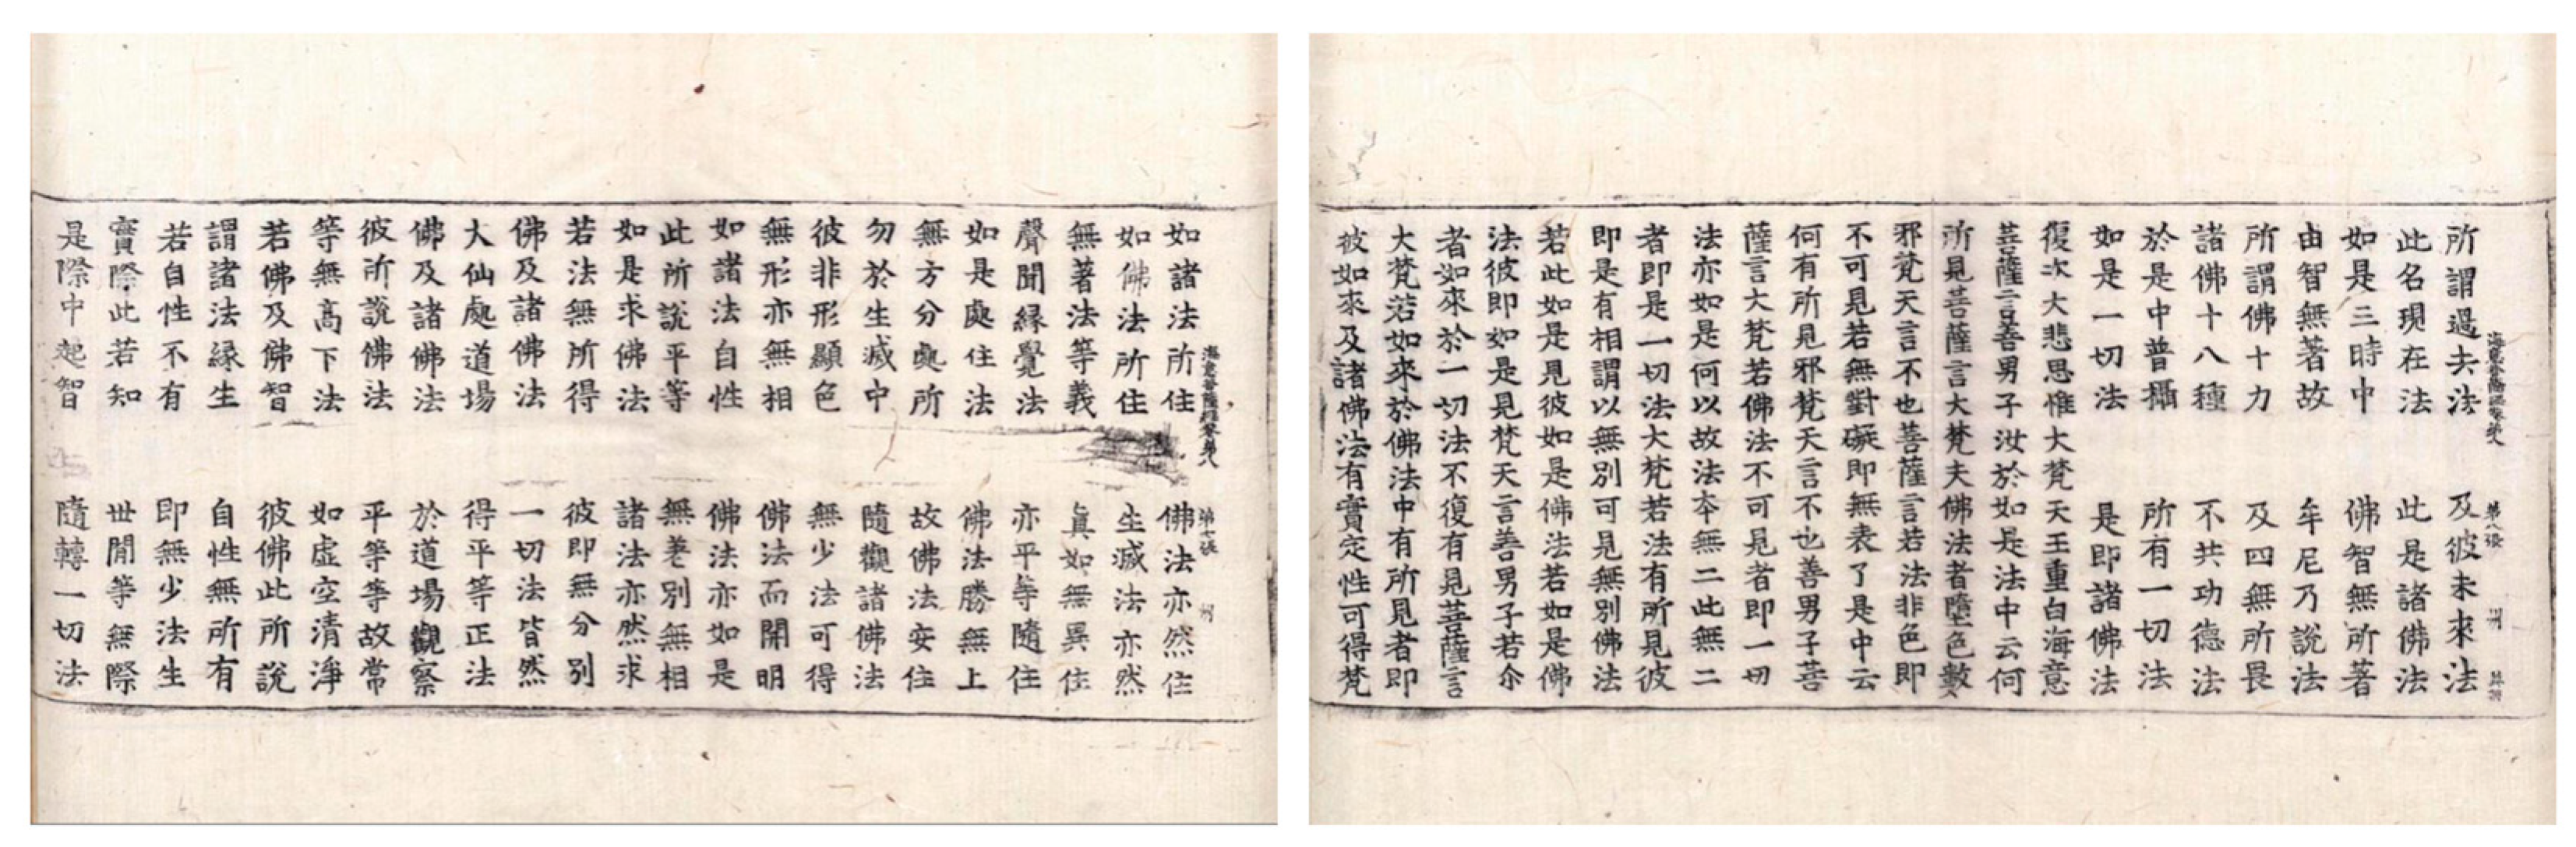 海意菩薩經卷第八　第七張　州
如諸法所住　佛法亦然住
如佛法所住　生滅法亦然
無著法等義　真如無異住
聲聞緣覺法　亦平等隨住
如是處住法　佛法勝無上
無方分處所　故佛法安住
勿於生滅中　隨觀諸佛法
彼非形顯色　無少法可得
無形亦無相　佛法而開明
如諸法自性　佛法亦如是
此所說平等　無差別無相
如是求佛法　諸法亦然求
若法無所得　彼即無分別
佛及諸佛法　一切法皆然
大仙處道場　得平等正法
佛及諸佛法　於道場觀察
彼所說佛法　平等等故常
等無高下法　如虛空清淨
若佛及佛智　彼佛此所說
謂諸法緣生　自性無所有
若自性不有　即無少法生
實際此若知　世閒等無際
是際中起智　隨轉一切法
海意菩薩經卷第八　第八張　州
所謂過去法　及彼未來法
此名現在法　此是諸佛法
如是三時中　佛智無所著
由智無著故　牟尼乃說法
所謂佛十力　及四無所畏
諸佛十八種　不共功德法
於是中普攝　所有一切法
如是一切法　是即諸佛法
復次大悲思惟大梵天王重白海意
菩薩言善男子汝於如是法中云何
所見菩薩言大梵夫佛法者墮色數
邪梵天言不也菩薩言若法非色即
不可見若無對礙即無表了是中云
何有所見邪梵天言不也善男子菩
薩言大梵若佛法不可見者即一切
法亦如是何以故法本無二此無二
者即是一切法大梵若法有所見彼
即是有相謂以無別可見無別佛法
若此如是見彼如是佛法若如是佛
法彼即如是見梵天言善男子若尒
者如來於一切法不復有見菩薩言
大梵若如來於佛法中有所見者即
彼如來及諸佛法有實定性可得梵